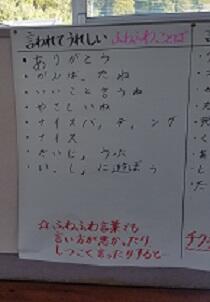 言われてうれしい ふわふわことば
・ありがとう
・がんばったね
・いいこと言うね
・やさしいね
・ナイスバッティング
・ナイス
・だいじょうぶ
・いっしょに遊ぼう
☆ふわふわ言葉でも
言い方が悪かったり
しつこく言ったりすると…
チク